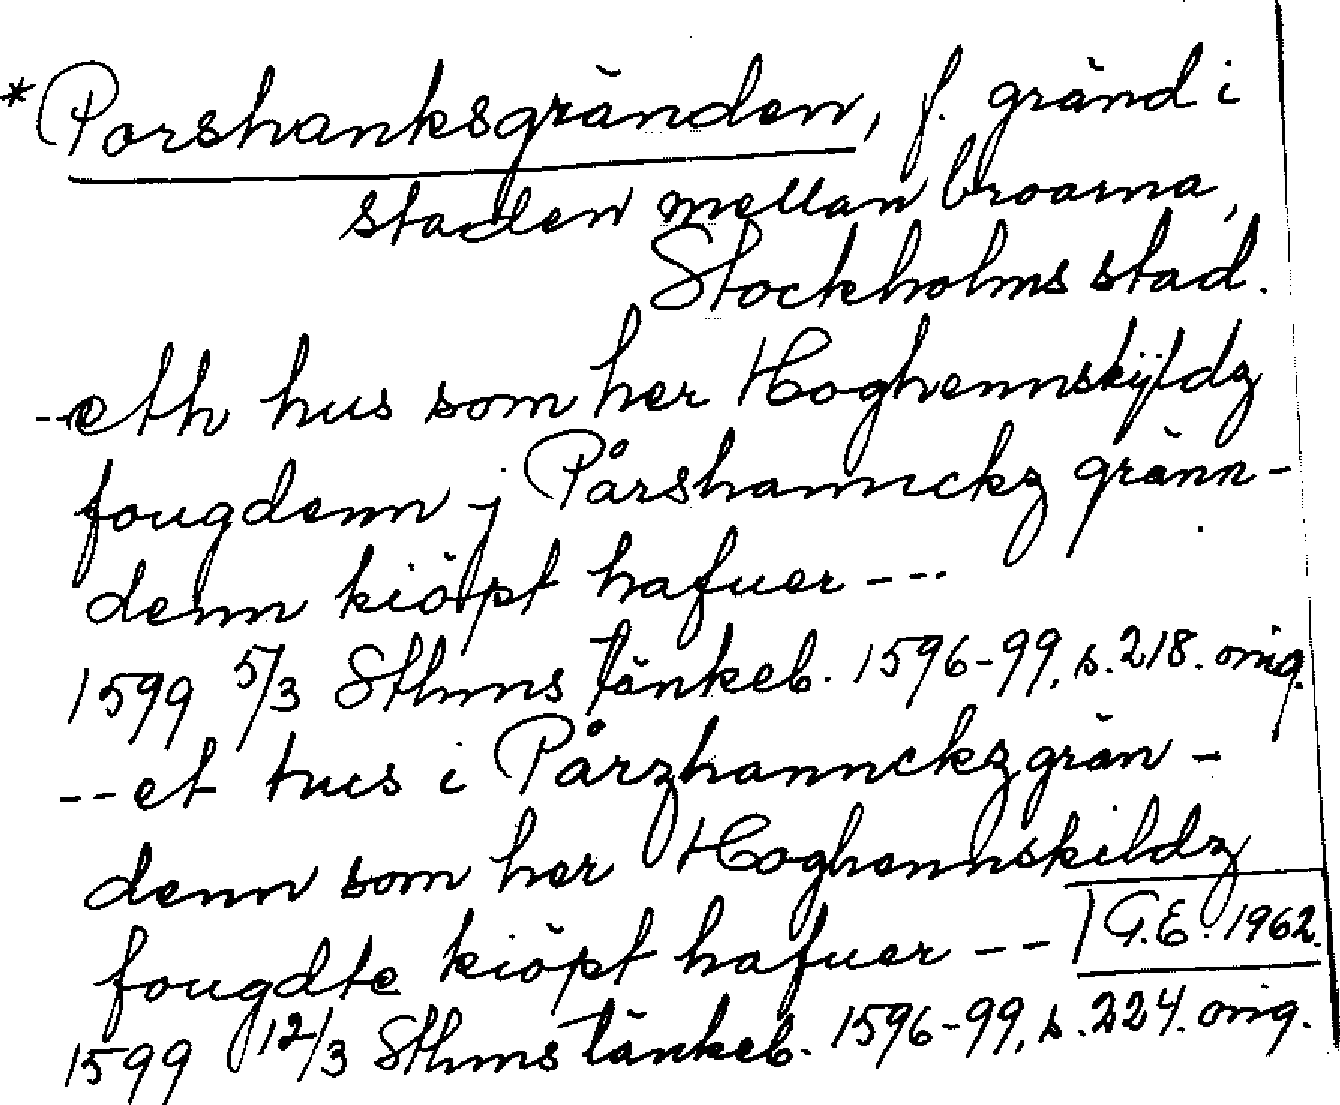 *Porshanksgränden, f. gränd i
staden mellan broarna,
Stockholms stad.
--eth hus som her Hoghennskÿldz
fougdenn j Pårshannckz gränn-
denn kiöpt hafuer ---
1599 5/3 Sthms tänkeb. 1596-99, s. 218. orig.
--et hus i Pårzhannckz grän-
denn som her Hoghennskildz
fougdte kiöpt hafuer --
G.E. 1962.
1599 12/3 Sthms tänkeb. 1596-99, s. 224. orig.